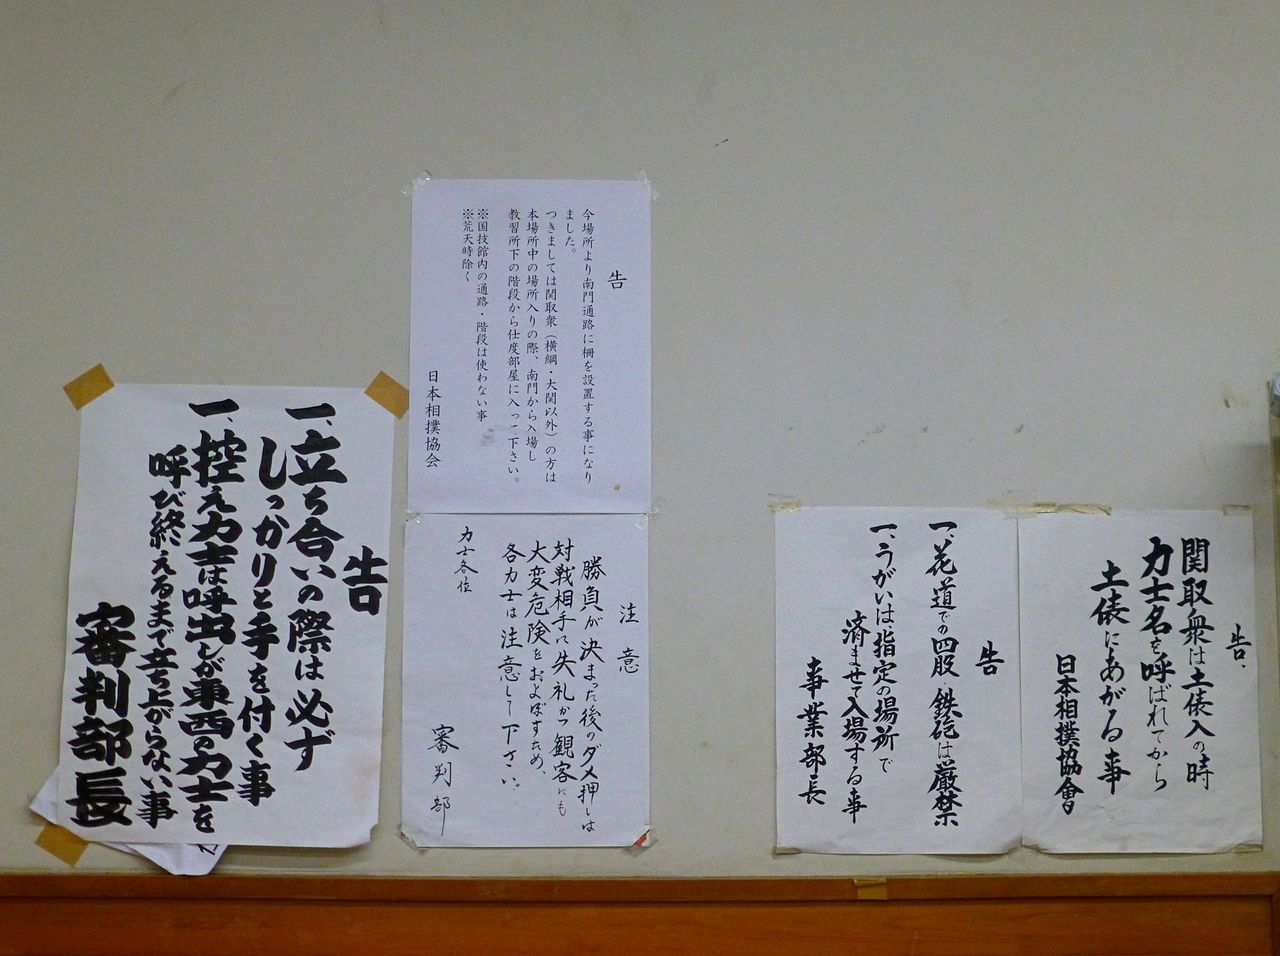 告
一、立ち合いの際は必ず
しっかりと手を付く事
一、控え力士は呼出しが東西の力士を
呼び終えるまで立ち上がらない事
審判部長
告
今場所より南門通路に柵を設置する事になり
ました。
つきましては関取衆（横綱・大関以外）の方は
本場所中の場所入りの際、南門から入場し
教習所下の階段から仕度部屋に入って下さい。
※国技館内の通路・階段は使わない事
※荒天時除く
日本相撲協会
注意
勝負が決まった後のダメ押しは
対戦相手に失礼かつ観客にも
大変危険をおよぼすため、
各力士は注意して下さい。
審判部
力士各位
告
一、花道での四股、鉄砲は厳禁
一、うがいは指定の場所で
済ませて入場する事
事業部長
告、
関取衆は土俵入の時
力士名を呼ばれてから
土俵にあがる事
日本相撲協會